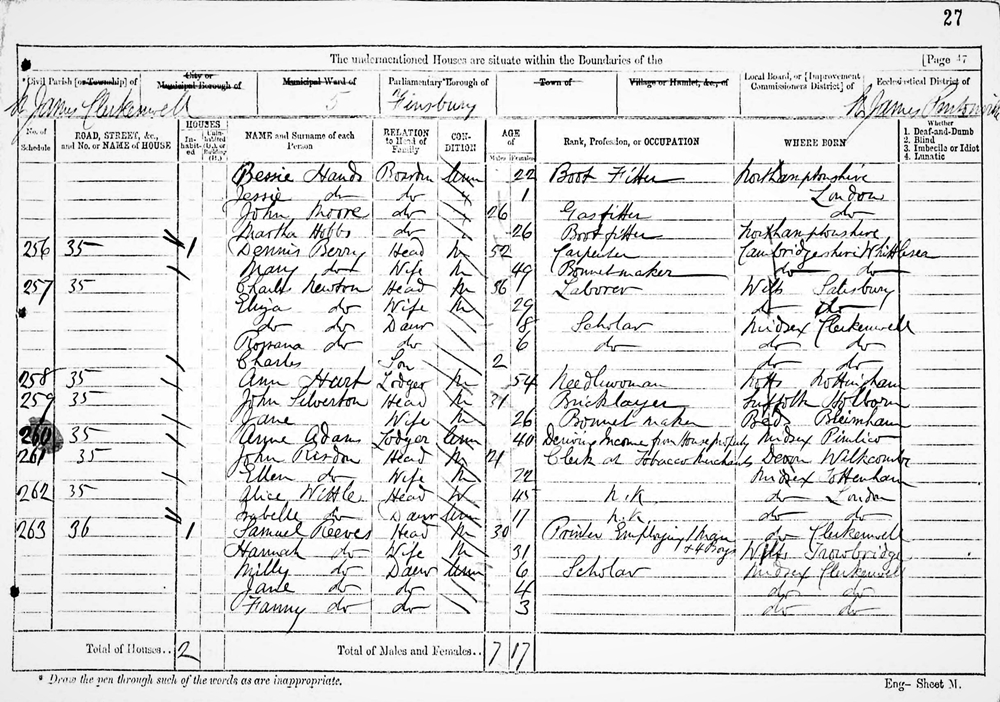 27
The undermentioned Houses are situate within the Boundaries of the [Page 47
*Civil Parish [or Township] of City or Municipal Borough of Municipal Ward of Parliamentary Borough of Town of Village or Hamlet, &c., of Local Board, or [Improvement Commissioners District] of Ecclesiastical District of
St James Clerkenwell 5 Finsbury St James Pentonville
No. of Schedule ROAD, STREET, &c., and No. or NAME of HOUSE HOUSES Inhabited Uninhabited (U.), or Building (B.) NAME and Surname of each Person RELATION to Head of Family CONDITION AGE Males Females Rank, Profession, or OCCUPATION WHERE BORN Whether 1. Deaf-and-Dumb 2. Blind 3. Imbecile or Idiot 4. Lunatic
Bessie Hands Boarder Unm 22 Boot Fitter Northamptonshire
Jessie do do 1 London
John Moore do 26 Gasfitter do
Martha Hobbs do 26 Bootfitter Northamptonshire
256 35 1 Dennis Berry Head M 52 Carpenter Cambridgeshire Whittlesea
Mary do Wife M 49 Bonnetmaker do do
257 35 Charles Newton Head M 36 Laborer Wilts Salisbury
Eliza do Wife M 29 do do
do do Daur 8 Scholar Midsex Clerkenwell
Rosana do do 6 do do do
Charles Son 2 do do
258 35 Ann Hurt Lodger M 54 Needlewoman Notts Nottingham
259 35 John Silverton Head M 31 Bricklayer Suffolk Holborn
Jane Wife M 26 Bonnet maker Beds
260 35 Anne Adams Lodger Unm 40 Deriving Income from House property Midsex Pimlico
261 35 John Risdon Head M 21 Clerk at Tobacco Merchants Devon
Ellen do Wife M 22 Midsex Tottenham
262 35 Alice Head W 45 N.K do London
Isabelle do Daur Unm 17 N.K do do
263 36 1 Samuel Reeves Head M 30 Printer Employing 1 Man + 4 Boys do Clerkenwell
Hannah do Wife M 31 Wilts Trowbridge
Milly do Daur Unm 6 Scholar Midsex Clerkenwell
Jane do do 4 do do
Fanny do do 3 do do
Total of Houses.. 2 Total of Males and Females.. 7 17
* Draw the pen through such of the words as are inappropriate.
Eng- Sheet M.